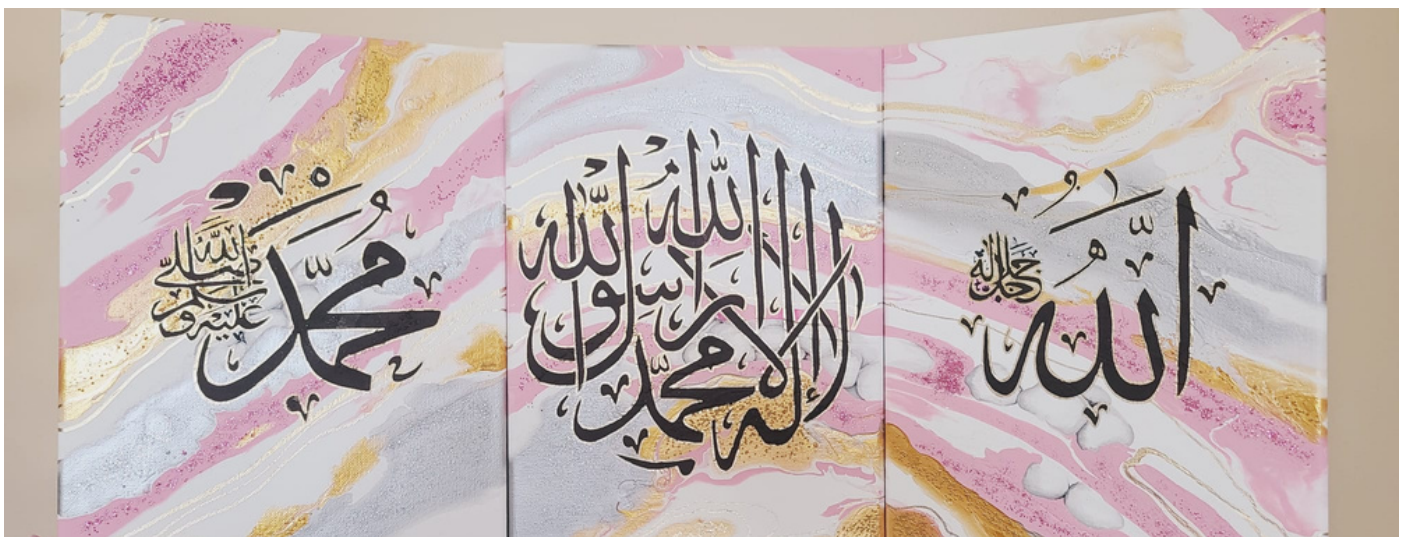 الله
جل جلاله
لا إله إلا الله محمد رسول الله
محمد
صلى الله عليه وسلم